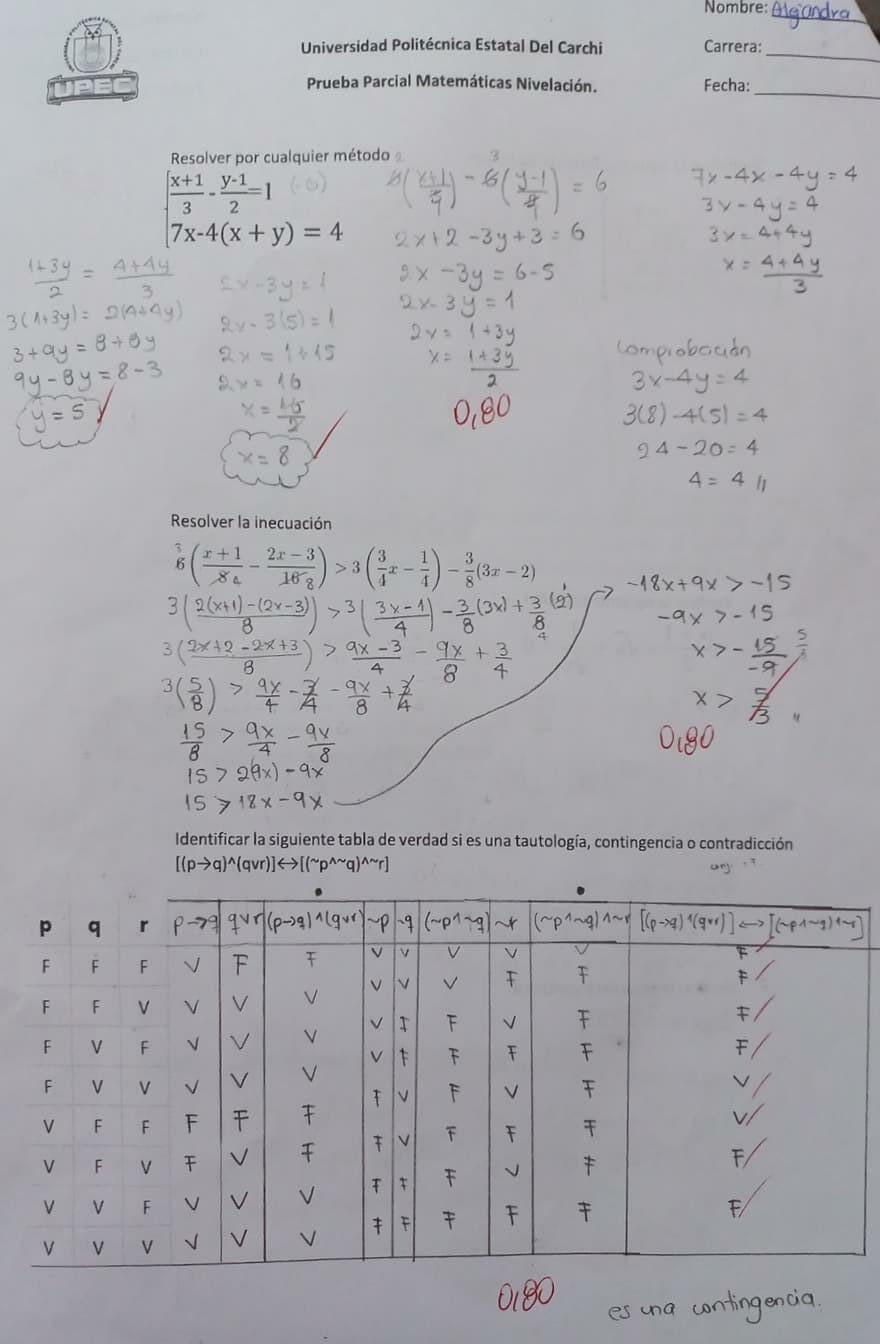 Nombre: Alejandra
Universidad Politécnica Estatal Del Carchi
Carrera:
UPEC
Prueba Parcial Matemáticas Nivelación.
Fecha:
Resolver por cualquier método
(x+1)/3 - (y-1)/2 = 1 (·6)
7x-4(x + y) = 4
6((x+1)/3) - 6((y-1)/2) = 6
2x+2-3y+3=6
2x-3y=6-5
2x-3y=1
2x=1+3y
x=(1+3y)/2
0,80
7x-4x-4y=4
3x-4y=4
3x=4+4y
x=(4+4y)/3
(1+3y)/2 = (4+4y)/3
3(1+3y)=2(4+4y)
3+9y=8+8y
9y-8y=8-3
y=5
2x-3y=1
2x-3(5)=1
2x=1+15
2x=16
x=16/2
x=8
Comprobación
3x-4y=4
3(8)-4(5)=4
24-20=4
4=4 //
Resolver la inecuación
6((x+1)/8 - (2x-3)/16) > 3(3/4 x - 1/4) - 3/8 (3x-2)
3((2(x+1)-(2x-3))/8) > 3((3x-1)/4) - 3/8 (3x) + 3/8 (2)
3((2x+2-2x+3)/8) > (9x-3)/4 - 9x/8 + 3/4
3(5/8) > 9x/4 - 3/4 - 9x/8 + 3/4
15/8 > 9x/4 - 9x/8
15 > 2(9x)-9x
15 > 18x-9x
-18x+9x > -15
-9x > -15
x > -15/-9 5/3
x > 5/3 //
0,80
Identificar la siguiente tabla de verdad si es una tautología, contingencia o contradicción
[(p→q)^(qvr)]↔[(~p^~q)^~r]
p q r p→q qvr (p→q)^(qvr) ~p ~q (~p^~q) ~r (~p^~q)^~r [(p→q)^(qvr)]↔[(~p^~q)^~r]
F F F V F F V V V V V F
F F V V V V V V V F F F
F V F V V V V F F V F F
F V V V V V V F F F F F
V F F F F F F V F V F V
V F V F V F F V F F F V
V V F V V V F F F V F F
V V V V V V F F F F F F
0,80
es una contingencia.